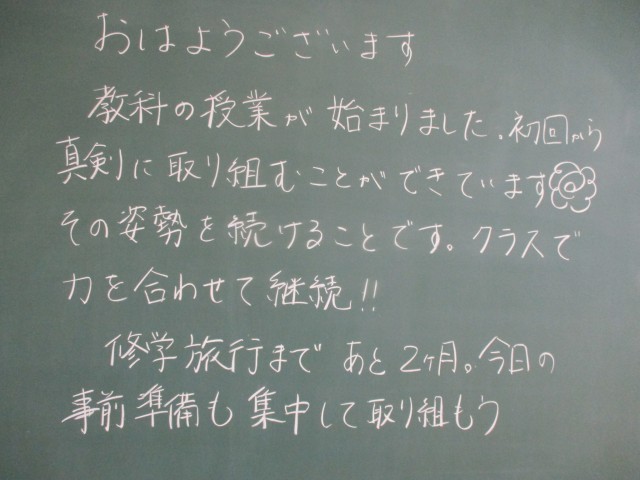 おはようございます
教科の授業が始まりました。初回から
真剣に取り組むことができています
その姿勢を続けることです。クラスで
力を合わせて継続!!
修学旅行まであと2ヶ月。今日の
事前準備も集中して取り組もう